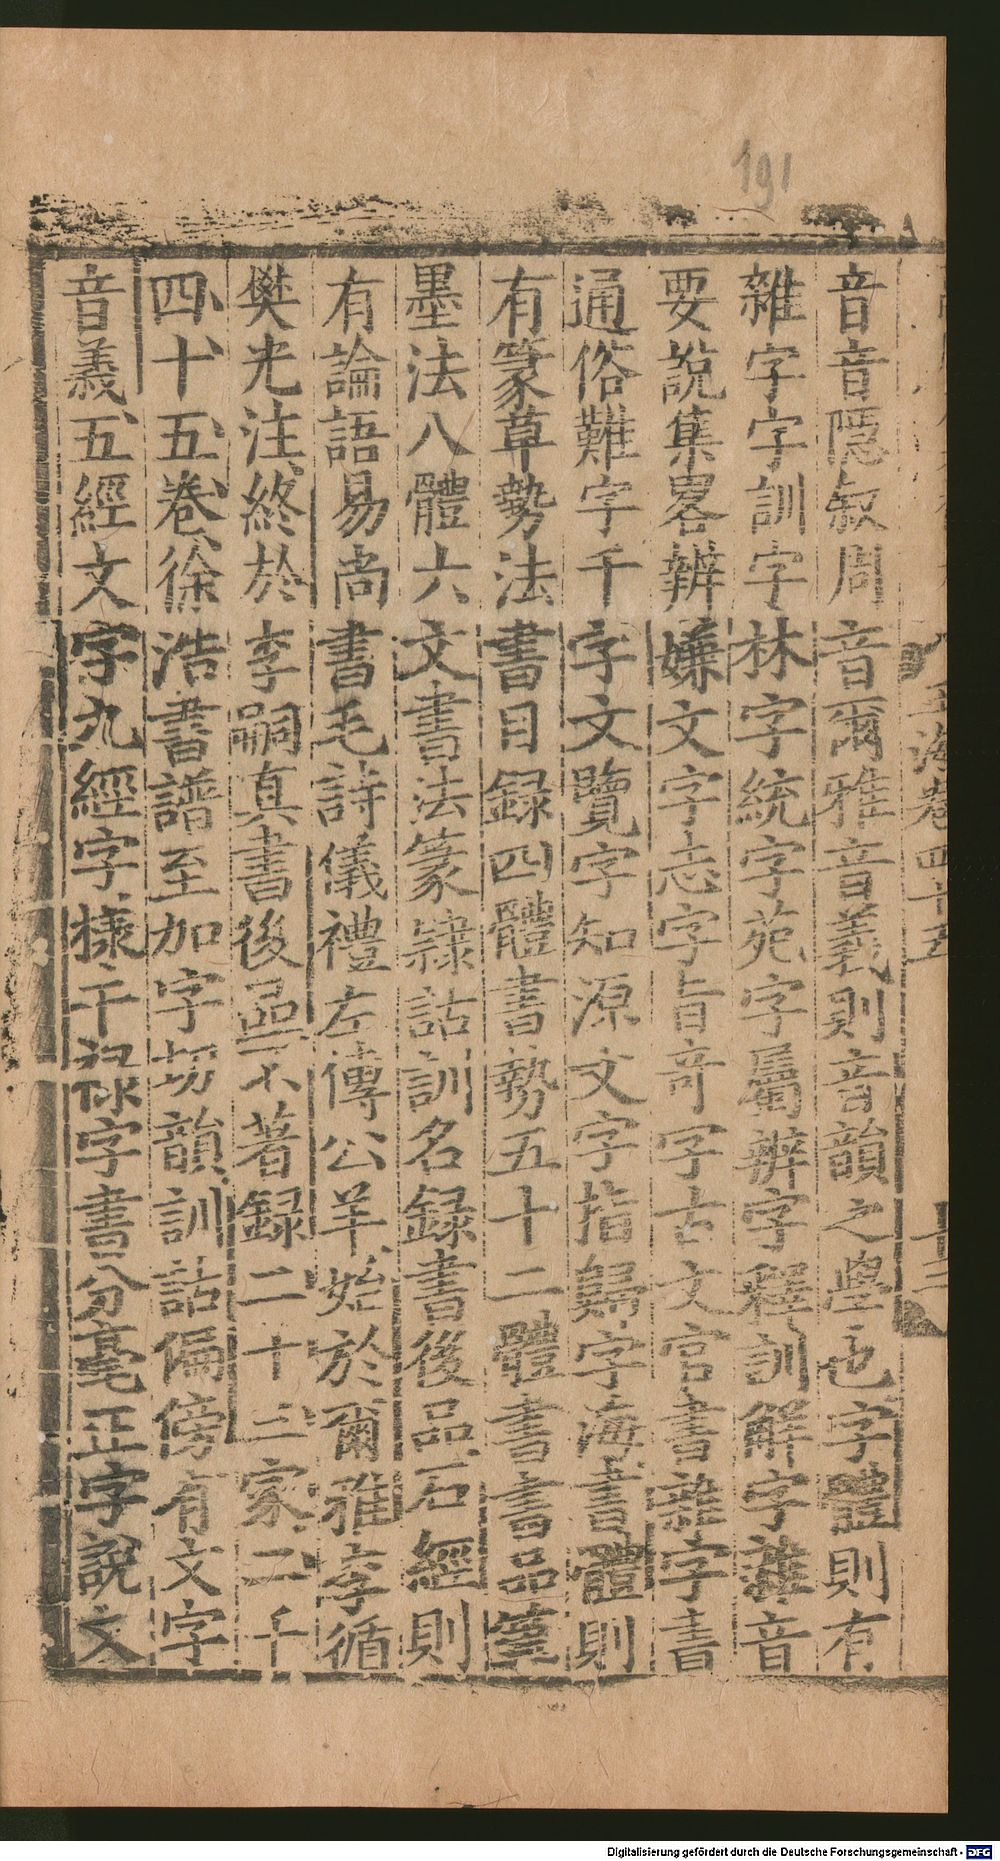 191
玉海卷四十五
音音隱叙周音爾雅音義則音韻之學也字體則有
雜字字訓字林字統字苑字屬辨字釋訓解字雜音
要說集畧辨嫌文字志字旨奇字古文官書雜字書
通俗難字千字文覽字知源文字指歸字海書體則
有篆草勢法書目録四體書勢五十二體書書品筆
墨法八體六文書法篆隸詁訓名録書後品石經則
有論語易尚書毛詩儀禮左傳公羊始於爾雅李循
樊光注終於李嗣真書後品不著録二十三家二千
四十五卷徐浩書譜至加字切韻訓詁偏傍有文字
音義五經文字九經字樣干禄字書分毫正字說文
Digitalisierung gefördert durch die Deutsche Forschungsgemeinschaft - DFG